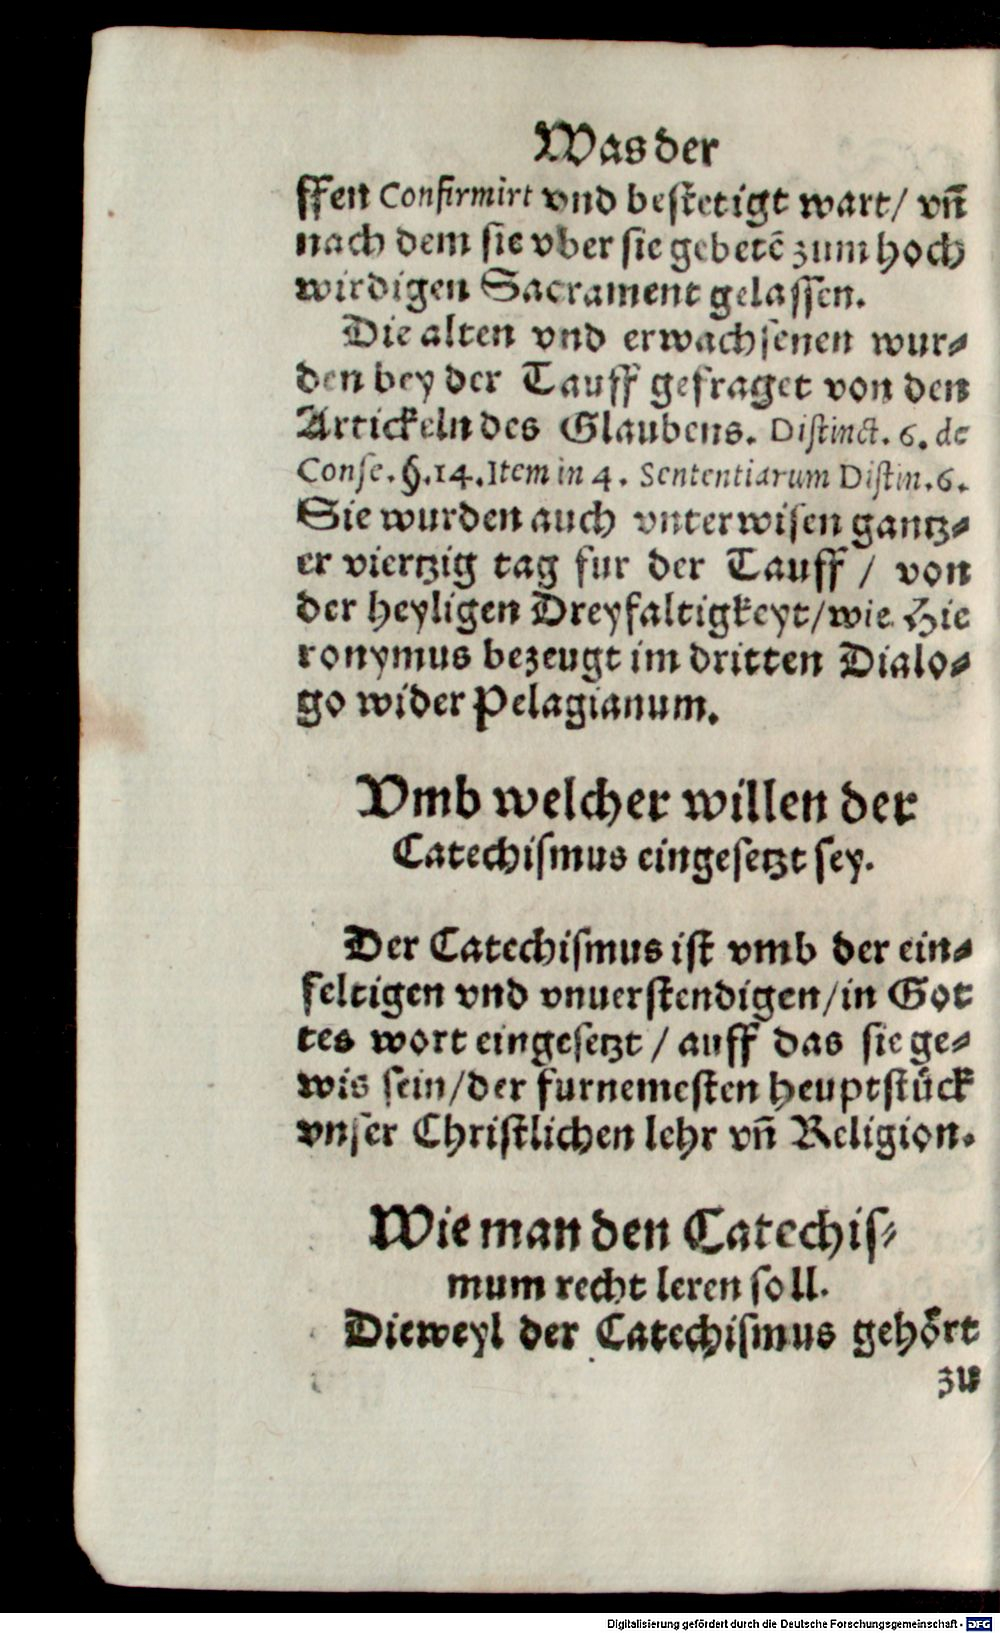 Was der
ffen Confirmirt vnd bestetigt wart/ vñ
nach dem sie vber sie gebetẽ zum hoch
wirdigen Sacrament gelassen.
Die alten vnd erwachsenen wur⸗
den bey der Tauff gefraget von den
Artickeln des Glaubens. Distinct. 6. de
Conse. §.14. Item in 4. Sententiarum Distin. 6.
Sie wurden auch vnterwisen gantz⸗
er viertzig tag fur der Tauff / von
der heyligen Dreyfaltigkeyt/wie Hie
ronymus bezeugt im dritten Dialo⸗
go wider Pelagianum.
Vmb welcher willen der
Catechismus eingesetzt sey.
Der Catechismus ist vmb der ein⸗
feltigen vnd vnuerstendigen/in Got
tes wort eingesetzt / auff das sie ge⸗
wis sein/der furnemesten heuptstück
vnser Christlichen lehr vñ Religion.
Wie man den Catechis⸗
mum recht leren soll.
Dieweyl der Catechismus gehört
zu
Digitalisierung gefördert durch die Deutsche Forschungsgemeinschaft - DFG